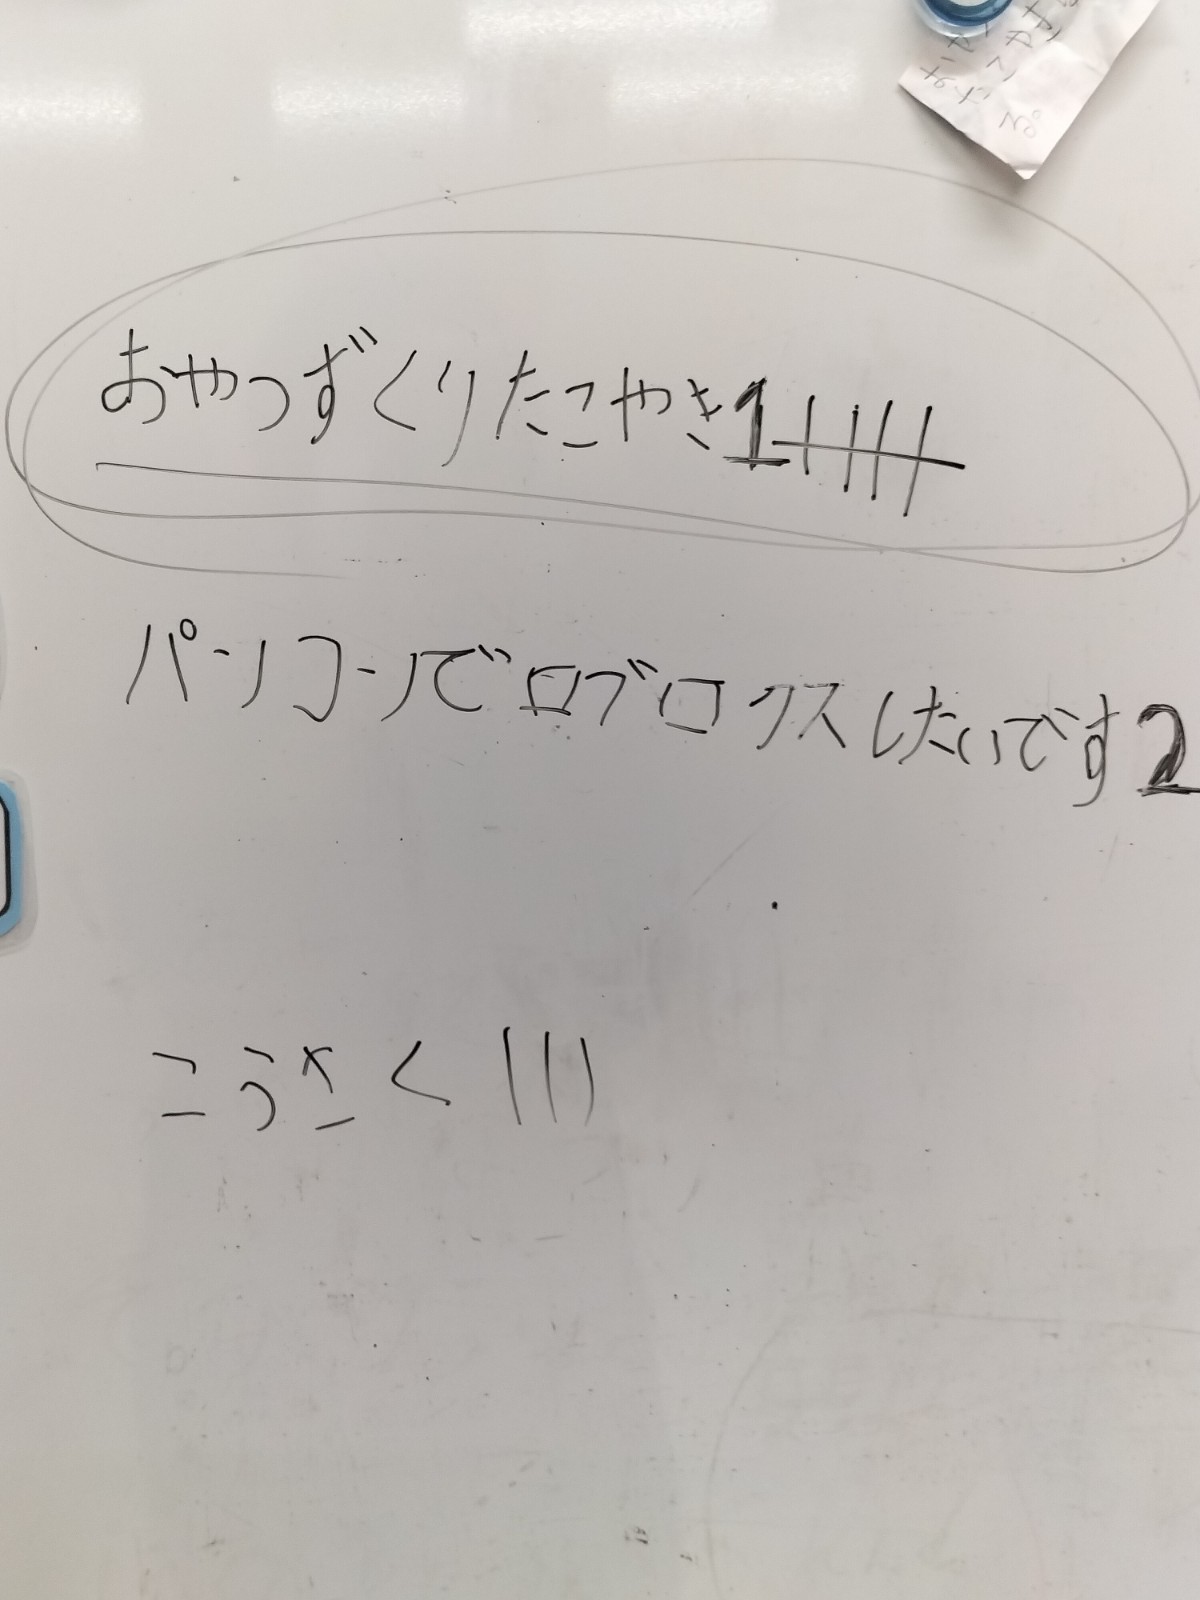 おやつずくりたこやき1
パソコンでロブロクスしたいです2
こうさく